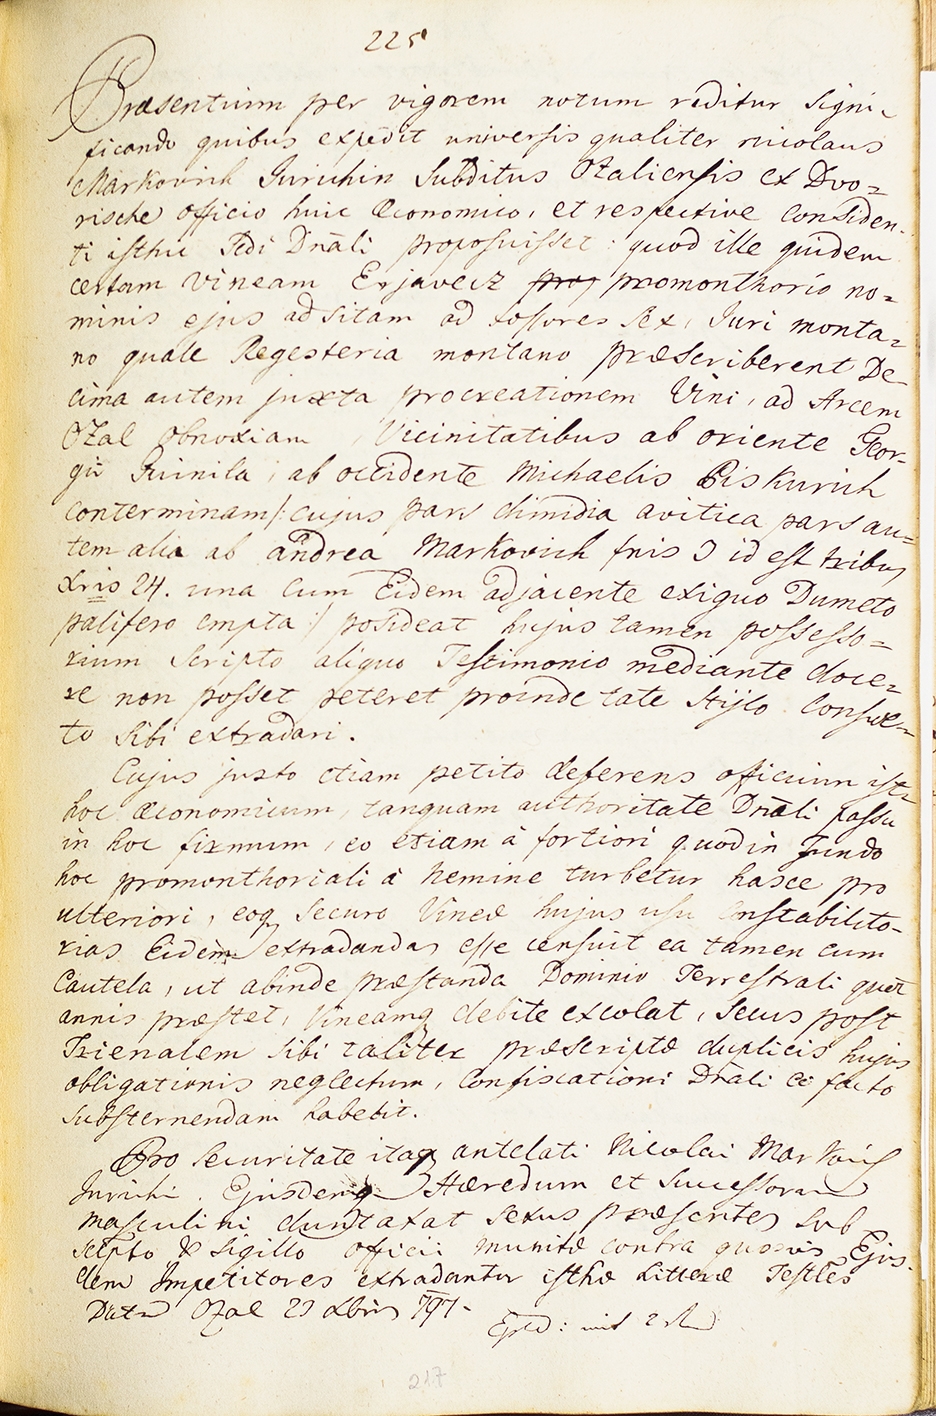 225
Præsentium per vigorem notum redditur signi-
ficando quibus expedit universis qualiter Nicolaus
Markovich Jurichin Subditus Ozaliensis ex Dvo=
rische officio huic œconomico, et respective Considen-
ti isthic Sedi Dnãli proposuisset: quod ille quidem
certam vineam Erjavecz promonthorio no=
minis ejus adsitam ad fossores sex, Juri monta=
no quale Regesteria montano præscriberent De
cima autem juxta procreationem Vini, ad Arcem
Ozal obnoxiam, Vicinitatibus ab oriente Geor-
gii ab occidente Michaelis Piskurich
conterminam/: cujus pars dimidia avitica pars au=
tem alia ab andrea Markovich fnis 3 id est tribus
Xris 24. una cum Eidem adjacente exiguo Dumeto
palifero empta :/ posideat hujus tamen possesso=
rium scripto aliquo Testimonio mediante doce=
re non posset peteret proinde tale stijlo Consve=
to sibi extradari.
Cujus justo etiam petito deferens officium ist=
hoc œconomicum, tanquam authoritate Dnãli passu
in hoc firmum, eo etiam à fortiori quod in fundo
hoc promonthoriali à nemine turbetur hasce pro
ulteriori, eoq securo Vineæ hujus usu Constabilito-
rias Eidem extradandas esse censuit ea tamen cum
Cautela, ut abinde præstanda Dominio Terrestrali quot
annis præstet, Vineamq debite excolat, secus post
Trienalem sibi taliter præscriptæ duplicis hujus
obligationis neglectum, Confiscationi Dnãli eo facto
substernendam habebit.
Pro securitate itaq antelati Nicolai Markovich
Jurichi. Ejusdemq Hæredum et Successorum
masculini duntaxat sexus præsentes sub
scripto & sigillo officii munitæ contra quosvis Ejus-
dem Impetitores extradantur isthæ Litteræ Testles
Datæ Ozal 23 Xbris 797.
217